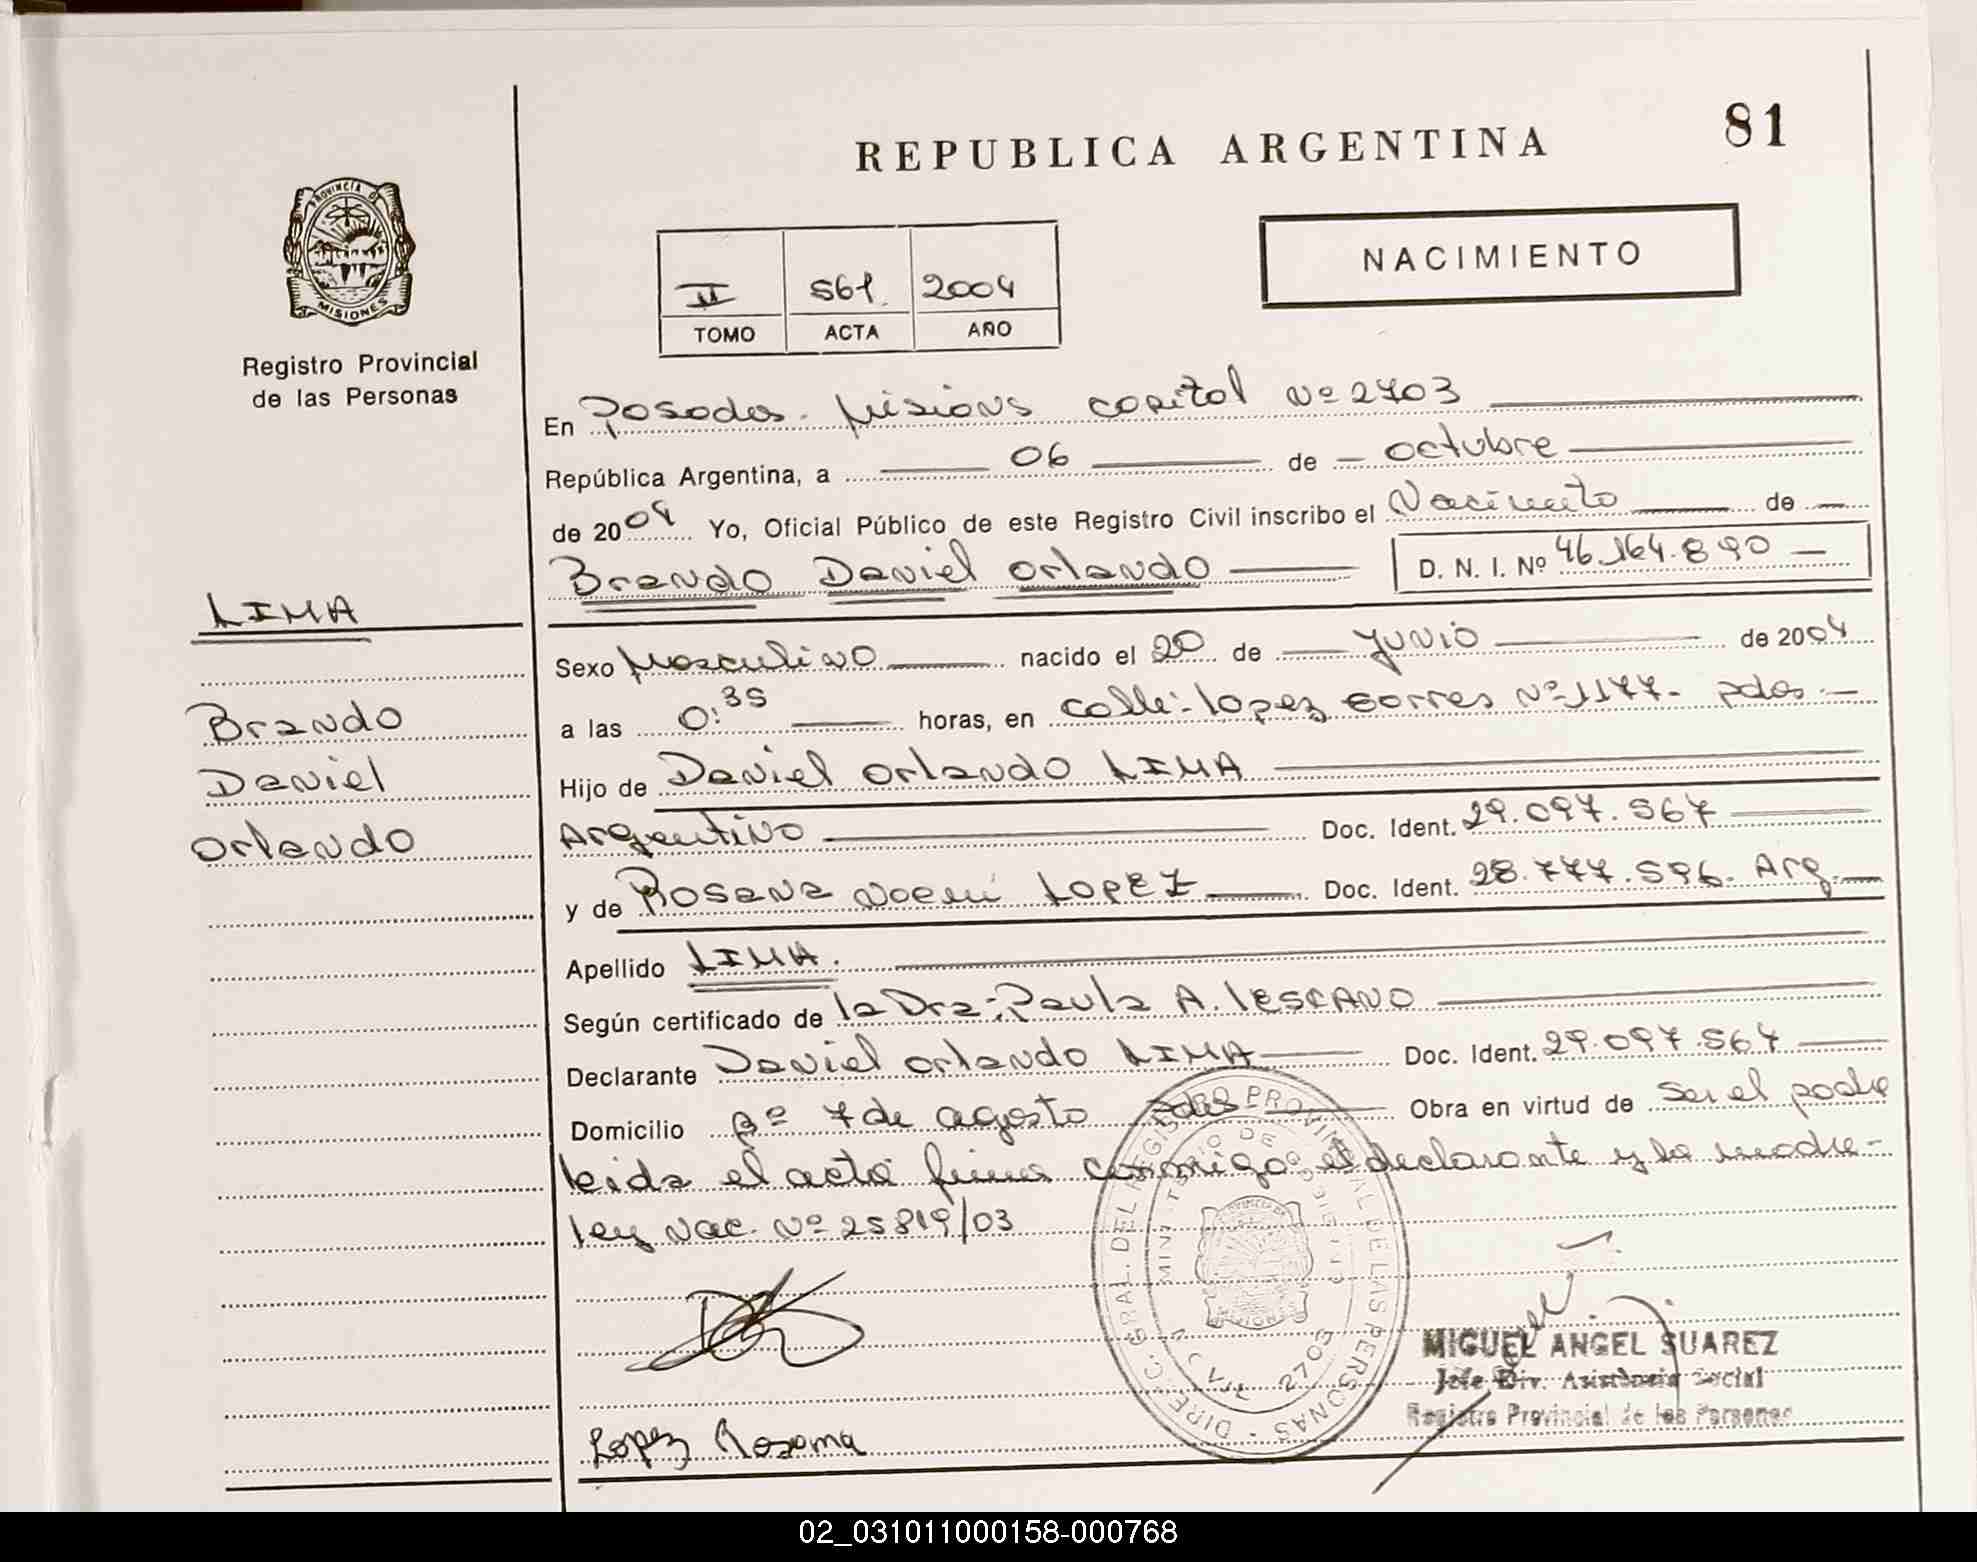 81
REPUBLICA ARGENTINA
PROVINCIA DE
MISIONES
Registro Provincial
de las Personas
NACIMIENTO
II 561 2004
TOMO ACTA AÑO
En Posadas. Misiones capital Nº 2703
República Argentina, a 06 de octubre
de 2004 Yo, Oficial Público de este Registro Civil inscribo el Nacimiento de
Brando Daniel Orlando D. N. I. Nº 46.164.890
LIMA
Brando
Daniel
Orlando
Sexo Masculino nacido el 20 de junio de 2004
a las 0:35 horas, en calle: lopez torres Nº 1177- pdas.-
Hijo de Daniel Orlando LIMA
Argentino Doc. Ident. 29.097.567
y de Rosana Noemí LOPEZ Doc. Ident. 28.777.596. Arg.
Apellido LIMA.
Según certificado de la Dra: Paula A. lescano
Declarante Daniel Orlando LIMA Doc. Ident. 29.097.567
Domicilio Bº 7 de agosto Pdas Obra en virtud de ser el padre
leida el acta firma conmigo el declarante y la madre-
ley Nac. Nº 25819/03
DIREC. GRAL. DEL REGISTRO PROVINCIAL DE LAS PERSONAS
MINISTERIO DE GOBIERNO
2703
MIGUEL ANGEL SUAREZ
Jefe Div. Asistencia Social
Registro Provincial de las Personas
Lopez Rosana
02_031011000158-000768